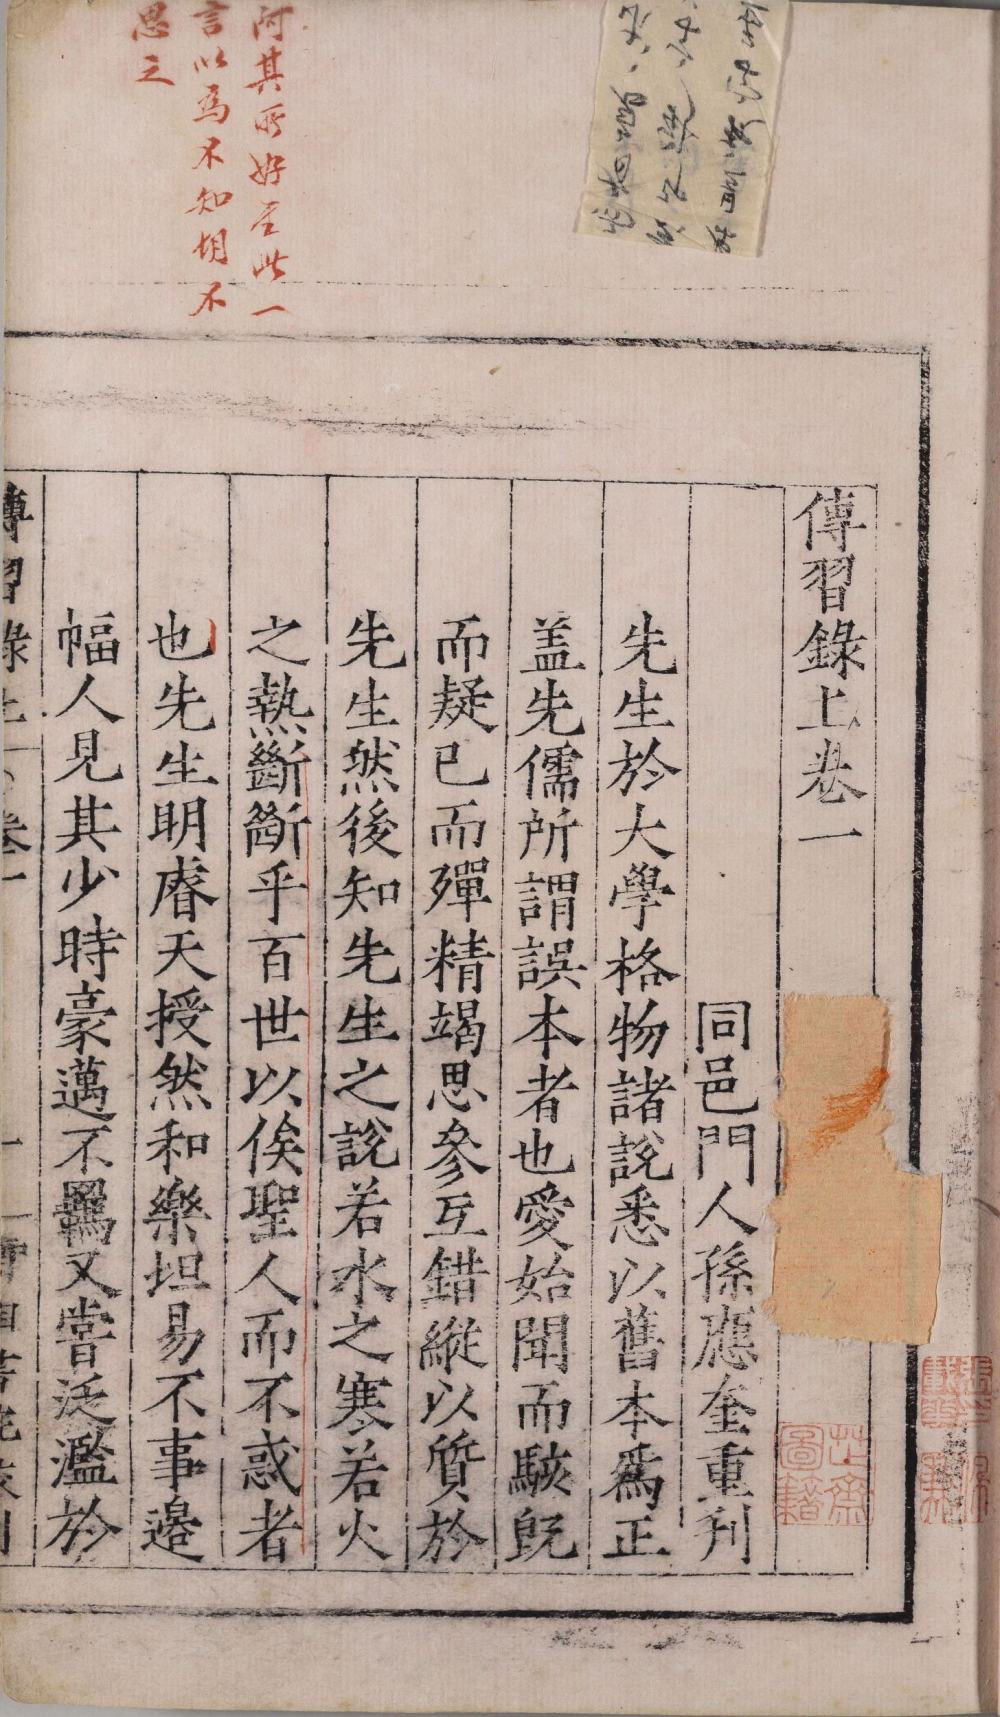 傳習錄上卷一
同邑門人孫應奎重刋
先生於大學格物諸說悉以舊本爲正
盖先儒所謂誤本者也愛始聞而駭旣
而疑已而殫精竭思參互錯縱以質於
先生然後知先生之說若水之寒若火
之熱斷斷乎百世以俟聖人而不惑者
也先生明睿天授然和樂坦易不事邉
幅人見其少時豪邁不羈又嘗泛濫於
傳習錄上 卷一
阿其所好至此一
言以爲不知胡不
思之
圖籍